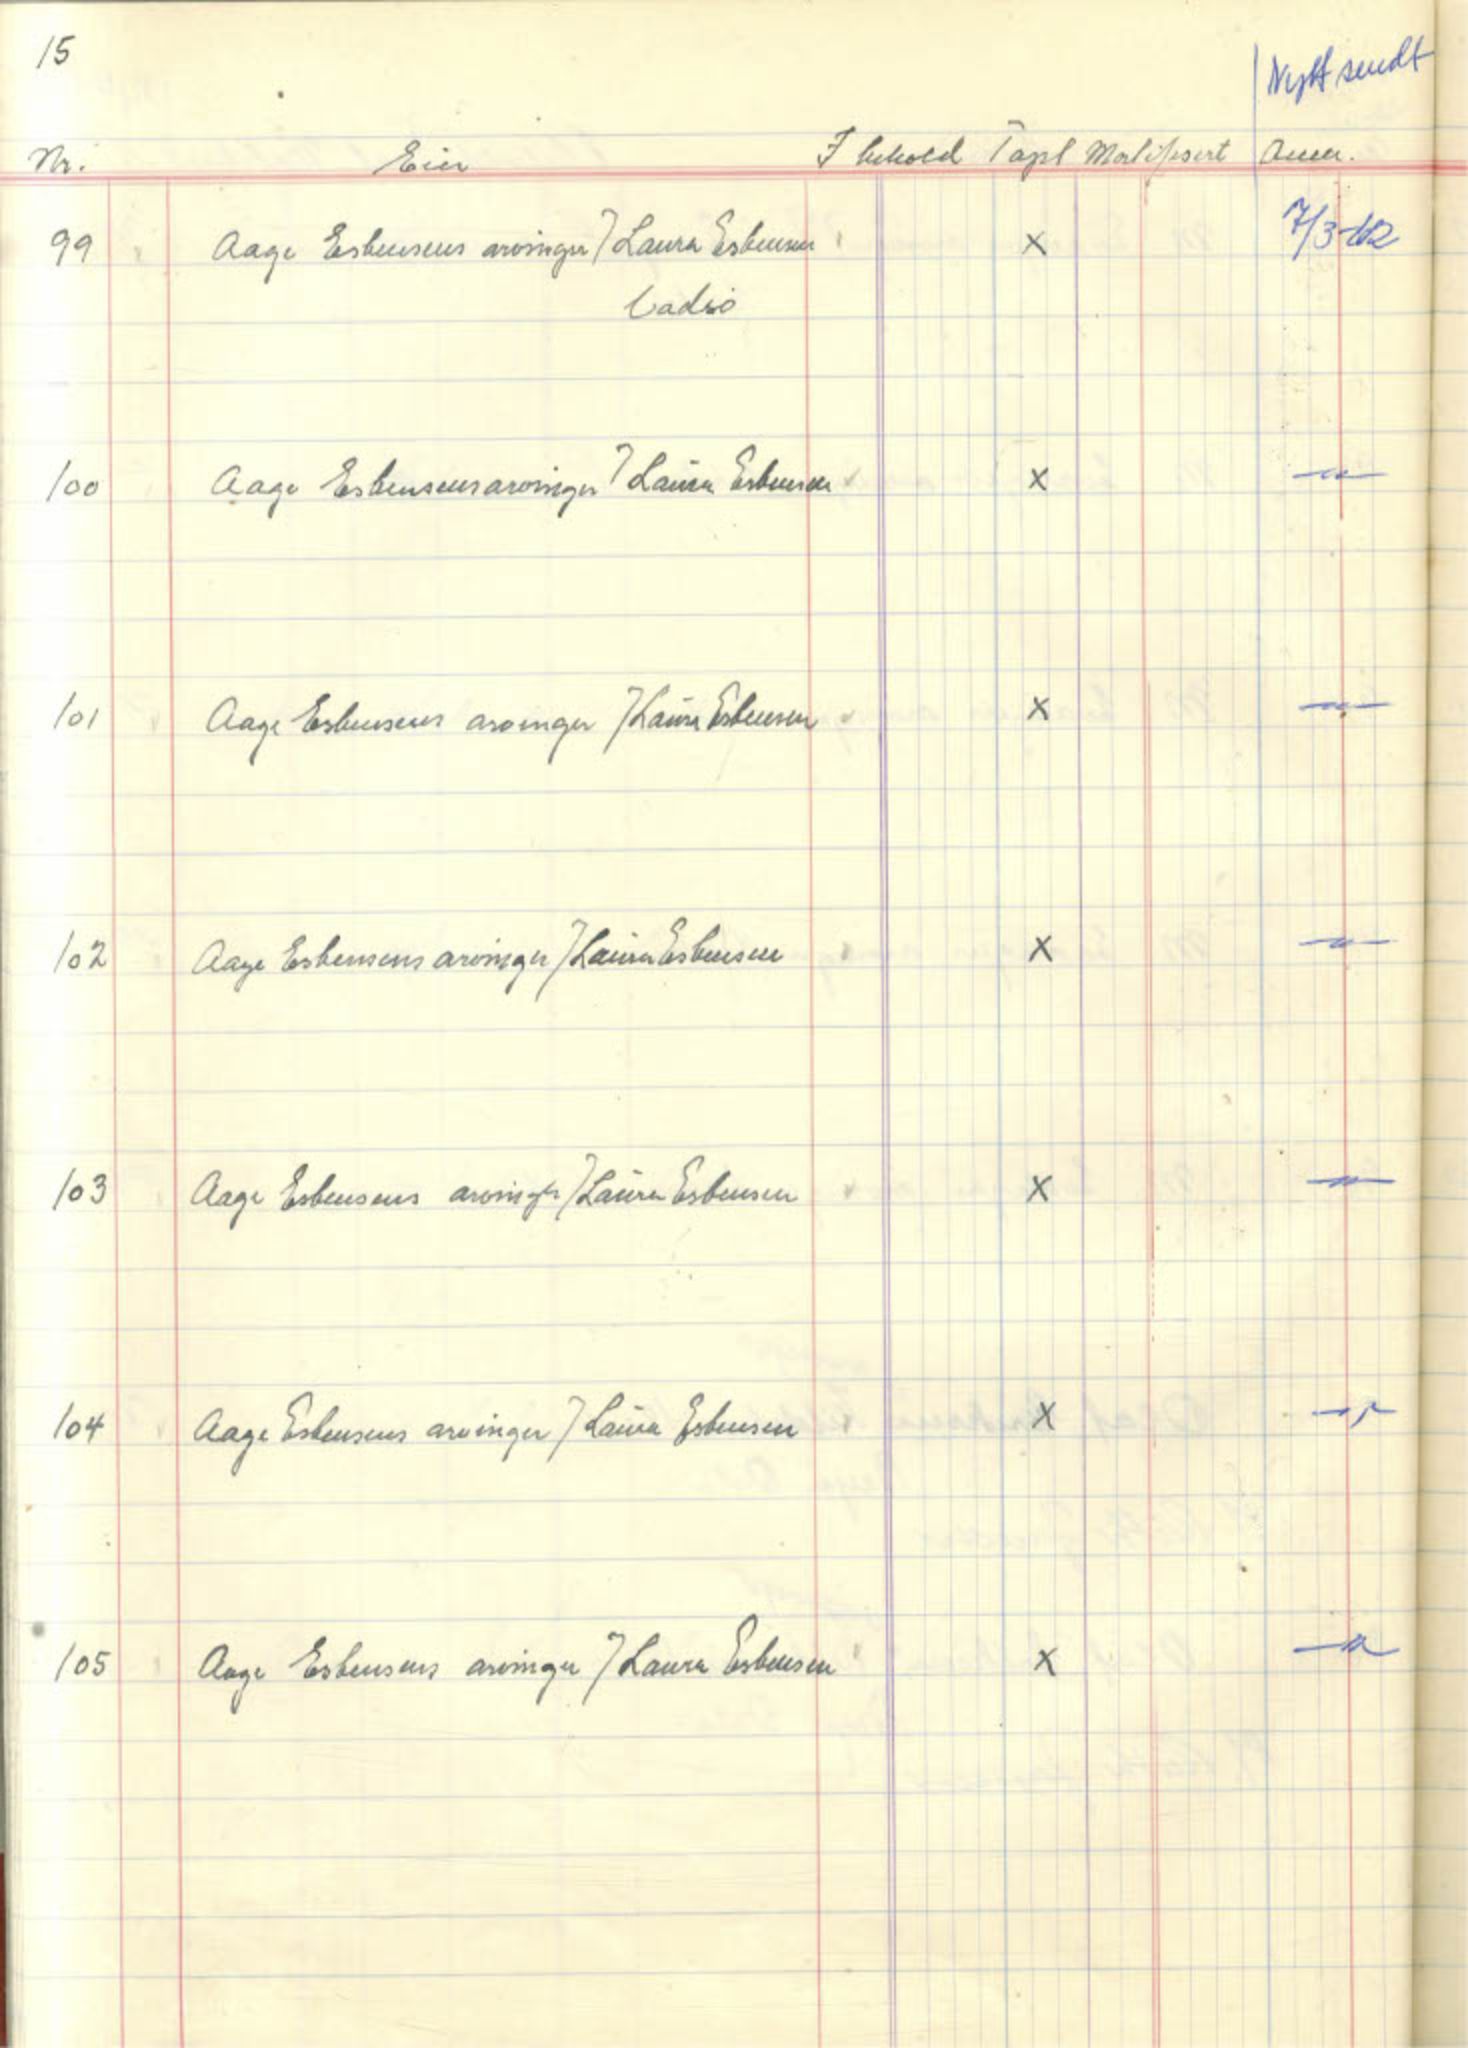 15
Nytt sendt
Nr. Eier I behold Tapt Mortifisert Anm.
99 Aage Esbensens arvinger / Laura Esbensen x 7/3-
Vadsø
100 Aage Esbensens arvinger / Laura Esbensen x —"—
101 Aage Esbensens arvinger / Laura Esbensen x —"—
102 Aage Esbensens arvinger / Laura Esbensen x —"—
103 Aage Esbensens arvinger / Laura Esbensen x —"—
104 Aage Esbensens arvinger / Laura Esbensen x —"—
105 Aage Esbensens arvinger / Laura Esbensen x —"—